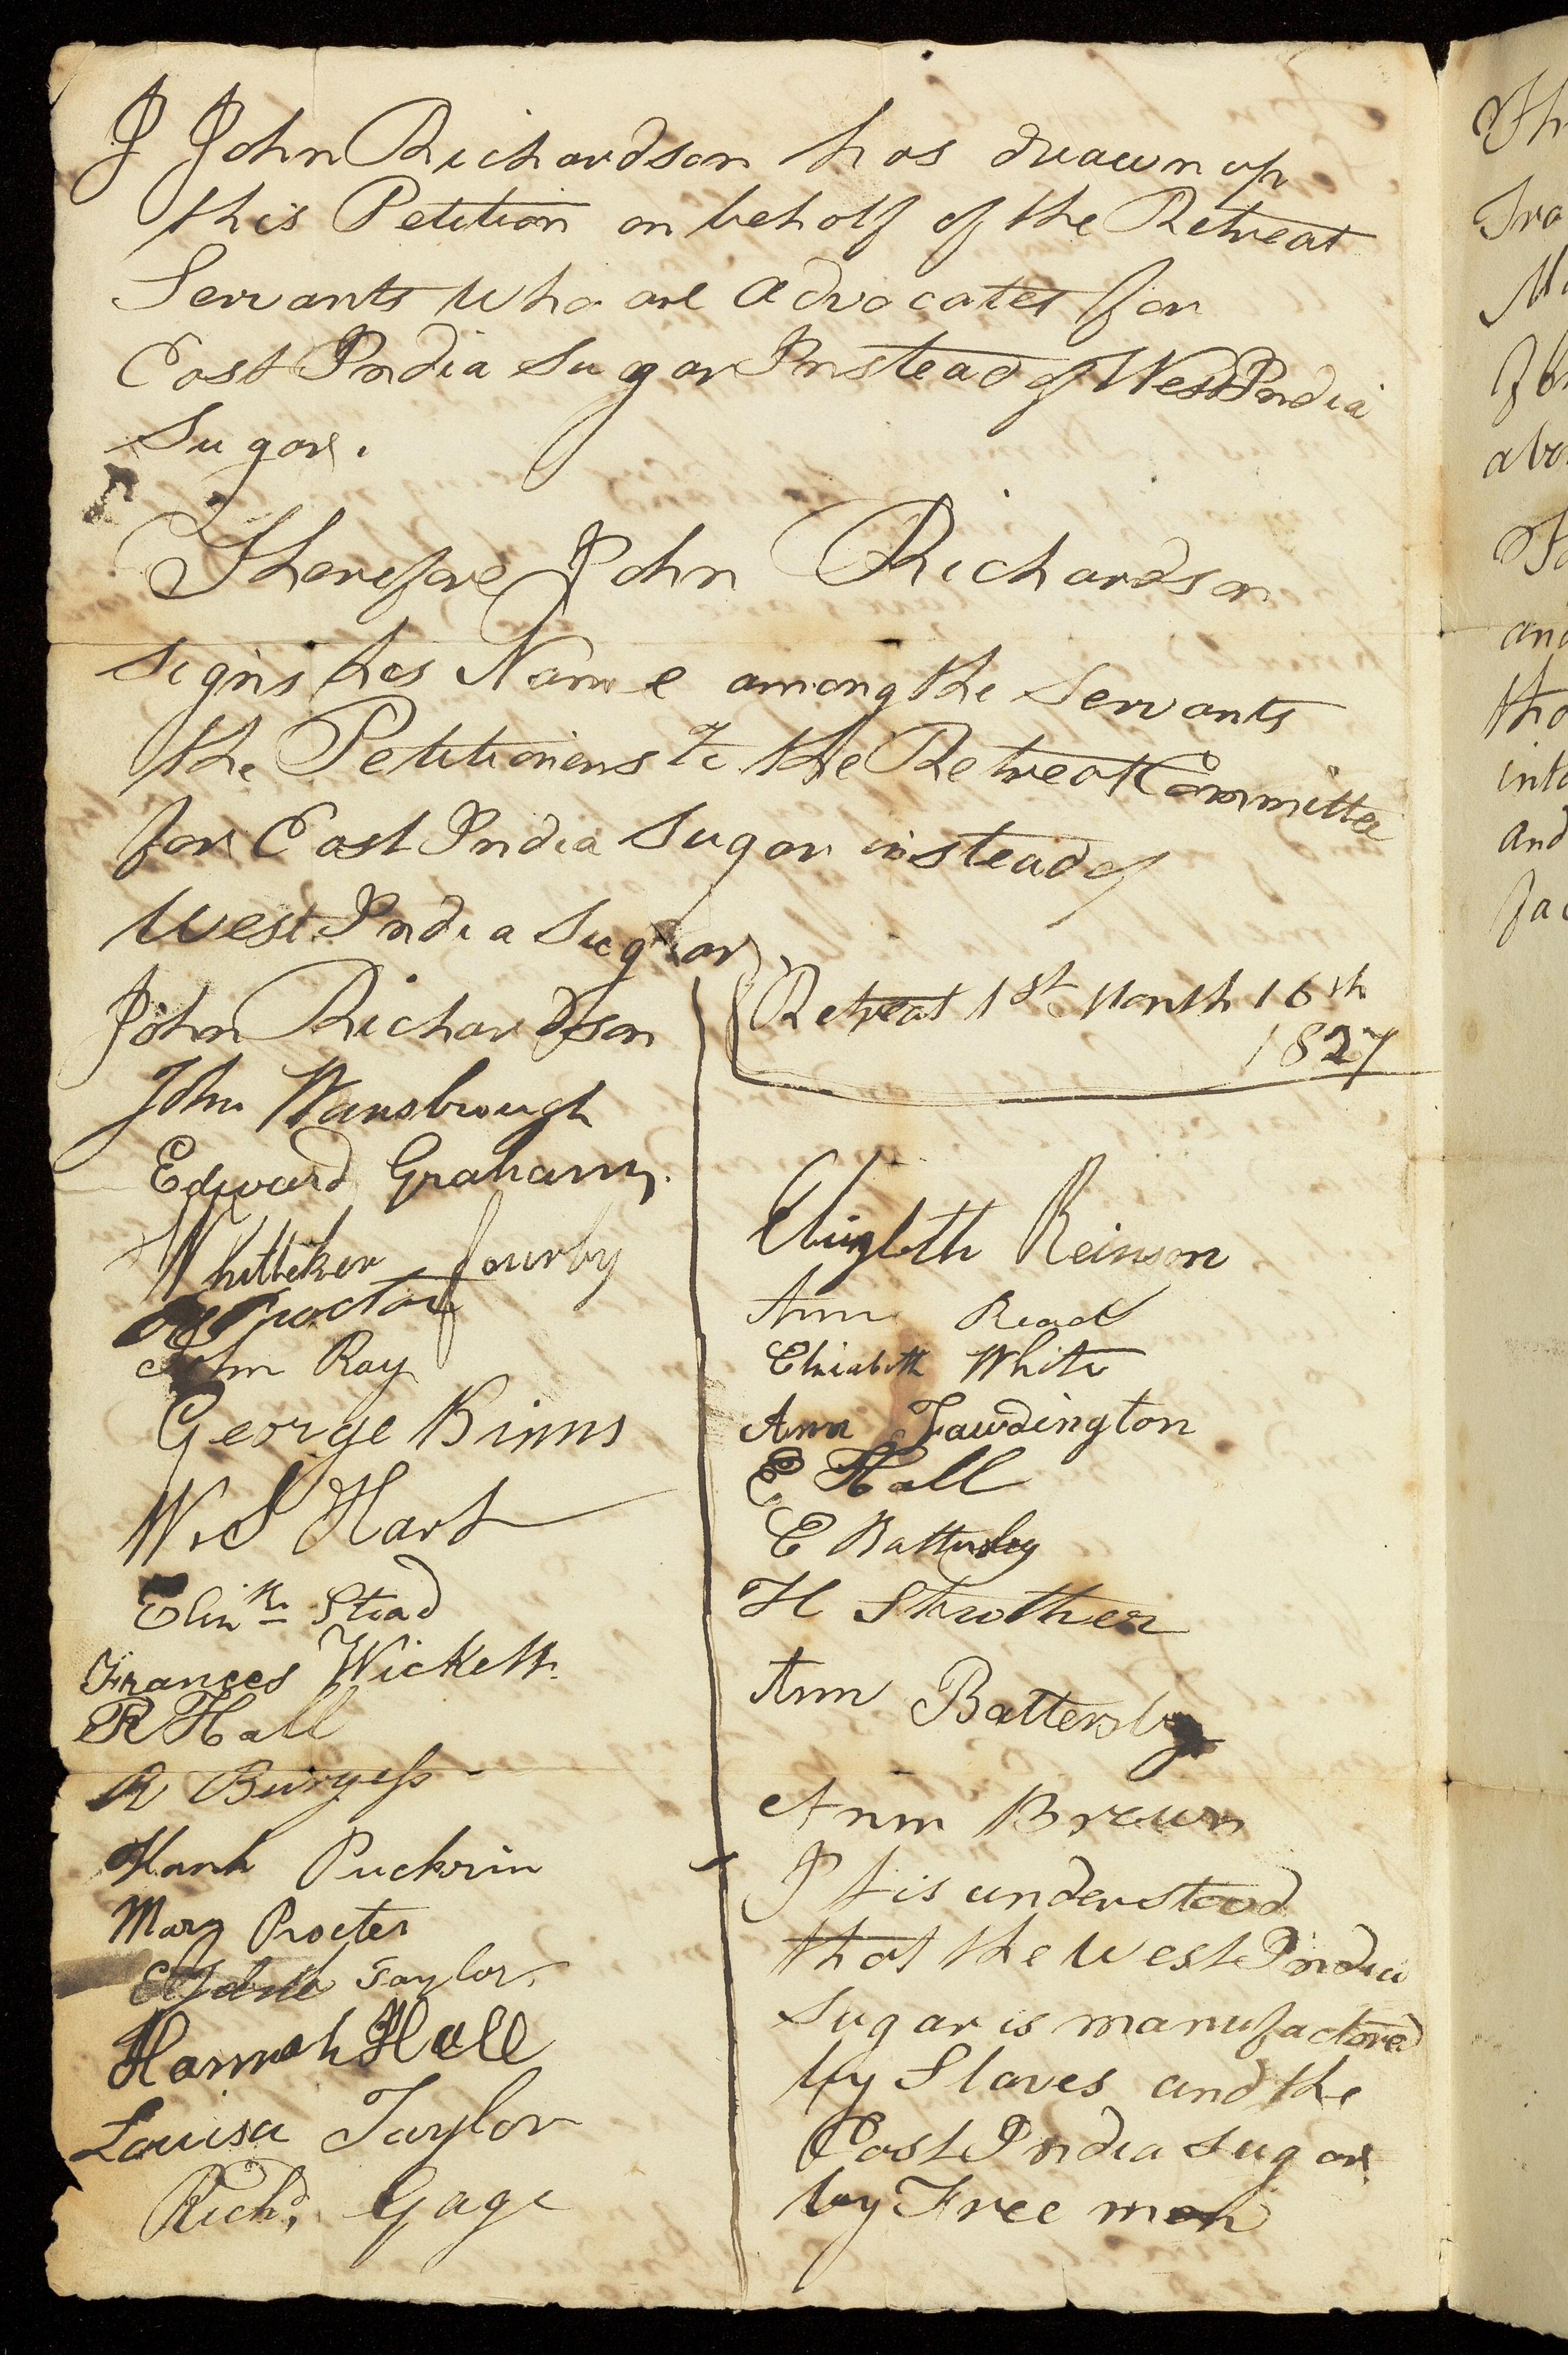 I John Richardson has drawn up
this Petition on behalf of the Retreat
Servants who are advocates for
East India Sugar Instead of West India
Sugar.
Therefore John Richardson
signs his Name among the Servants
the Petitioners to the Retreat Committee
for East India Sugar instead of
West India Sugar
John Richardson
John Wansbrough
Edward Graham
Whitteker
Proctor
John Ray
George Binns
W. S Hart
Stead
Frances Wickett
R Hall
R Burgess
Puckrin
Mary Procter
Taylor
Hannah Hall
Louisa Taylor
Richd. Gage
Retreat 1st Month 16th
1827
Reinson
Ann Read
Elizabeth White
Ann Fawdington
E Hall
E Battersby
H Strother
Ann Battersby
Ann Brown
It is understood
that the West India
Sugar is manufactored
by Slaves and the
East India Sugar
by Free men
Tra
and
into
and